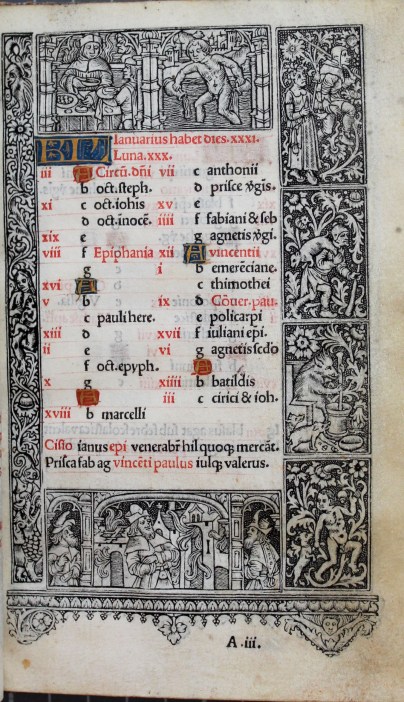 KL Ianuarius habet dies. xxxi.
Luna. xxx.
iii A Circũ. dñi
b oct. steph.
xi c oct. iohis
d oct. inocẽ.
xix e
viii f Epiphania
g
xvi A
v b
c pauli here.
xiii d
ii e
f oct. epyph.
x g
A
xviii b marcelli
vii c anthonii
d prisce v̾gis.
xv e
iiii f fabiani & seb
g agnetis v̾gi.
xii A vincentii
i b emerẽciane.
c thimothei
ix d Cõuer. pau.
e policarpi
xvii f iuliani epi.
vi g agnetis scđo
A
xiiii b batildis
iii c cirici & ioh.
Cisio ianus epi venerabr̃ hil quoq; mercãt.
Prisca fab ag vincẽti paulus iulq; valerus.
A. iii.